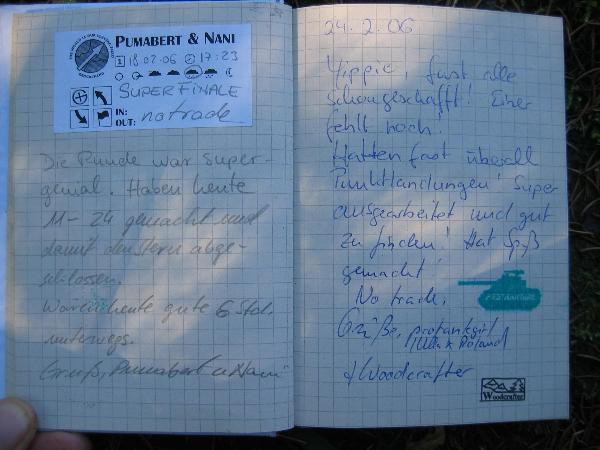 PUMABERT & NANI
18.02.06 17:23
SUPERFINALE
IN:
OUT: no trade
Die Runde war super-
genial. Haben heute
M-24 gemacht und
damit den Stern abge-
schlossen.
Waren heute gute 6 Std.
unterwegs.
Gruß, Pumabert u Nani
24.2.06
Yippie, fast alle
schon geschafft! Einer
fehlt noch!
Hatten fast überall
Punktlandungen! Super
ausgearbeitet und gut
zu finden! Hat Spaß
gemacht!
No trade,
Grüße, protankgirl
Ulla & Roland
+ Woodcrafter
Woodcrafter